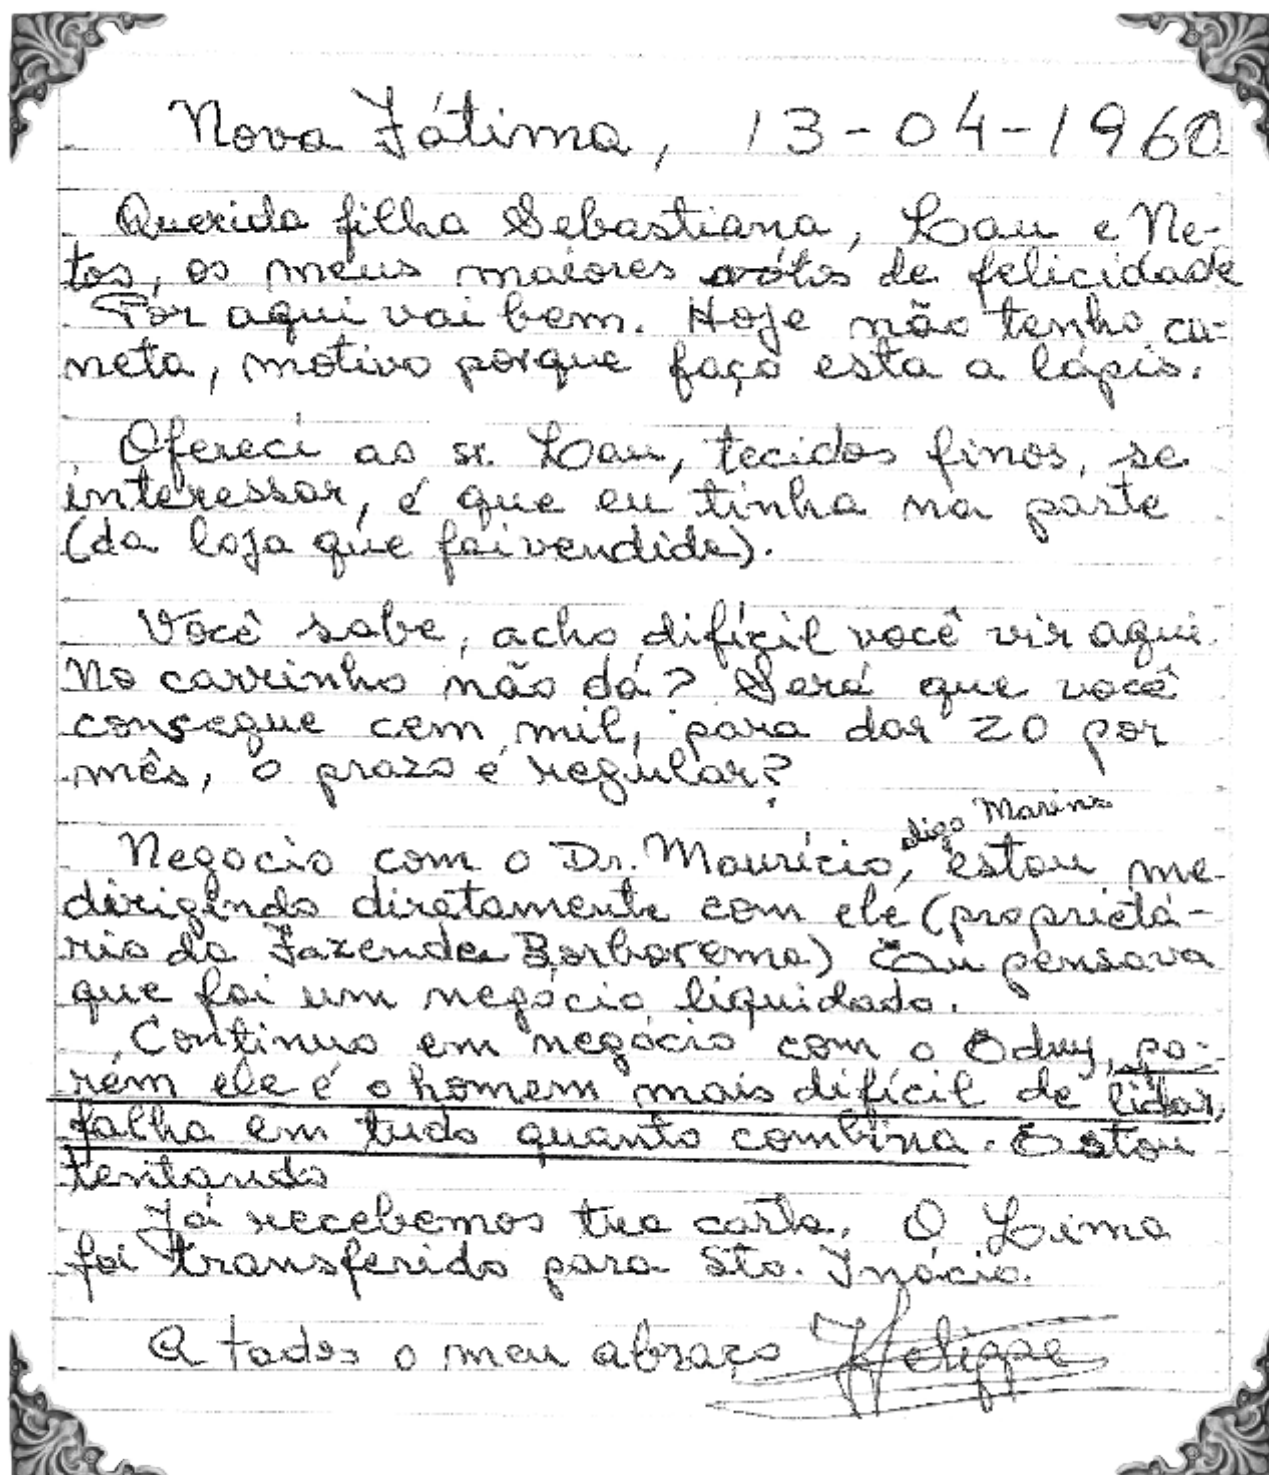 Nova Fátima, 13-04-1960
Querida filha Sebastiana, Lau e Ne-
tos, os meus maiores vótos de felicidade
Por aqui vai bem. Hoje não tenho ca-
neta, motivo porque faço esta a lápis.
Ofereci ao sr. Lau, tecidos finos, se
interessar, é que eu tinha na parte
(da loja que foi vendida).
Você sabe, acho difícil você vir aqui.
No carrinho não dá? Será que você
consegue cem mil, para dar 20 por
mês, o prazo é regular?
digo Marino
Negocio com o Dr. Maurício, estou me
dirigindo diretamente com ele (proprietá-
rio da Fazenda Borborema) Eu pensava
que foi um negócio liquidado.
Continuo em negócio com o Eduy, po-
rém ele é o homem mais difícil de lidar,
falha em tudo quanto combina. Estou
tentando
Já recebemos tua carta. O Lima
foi transferido para Sto. Inácio.
A todos o meu abraço Felippe